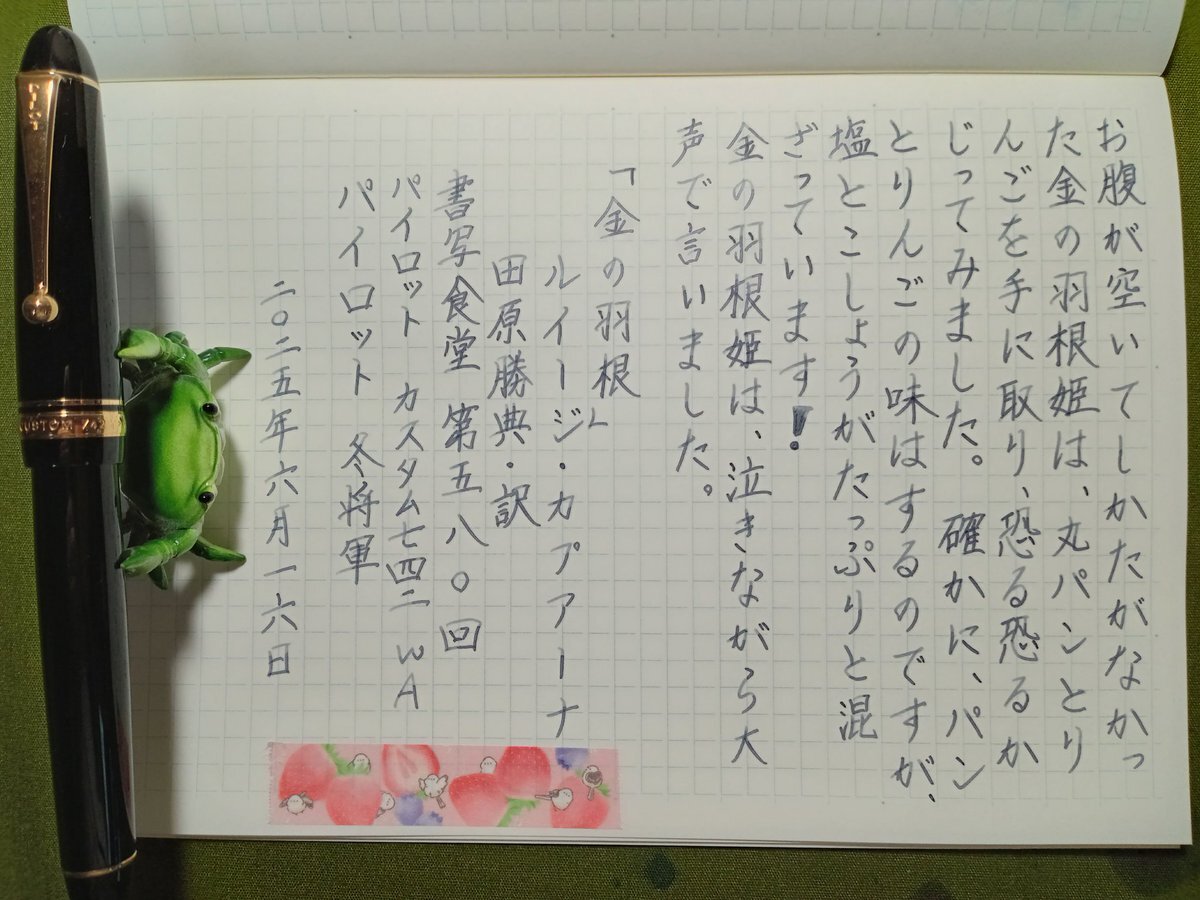 お腹が空いてしかたがなかっ
た金の羽根姫は、丸パンとり
んごを手に取り、恐る恐るか
じってみました。 確かに、パン
とりんごの味はするのですが、
塩とこしょうがたっぷりと混
ざっています!
金の羽根姫は、泣きながら大
声で言いました。
「金の羽根」
ルイージ・カプアーナ
田原勝典・訳
書写食堂 第五八〇回
パイロット カスタム七四二 WA
パイロット 冬将軍
二〇二五年六月一六日